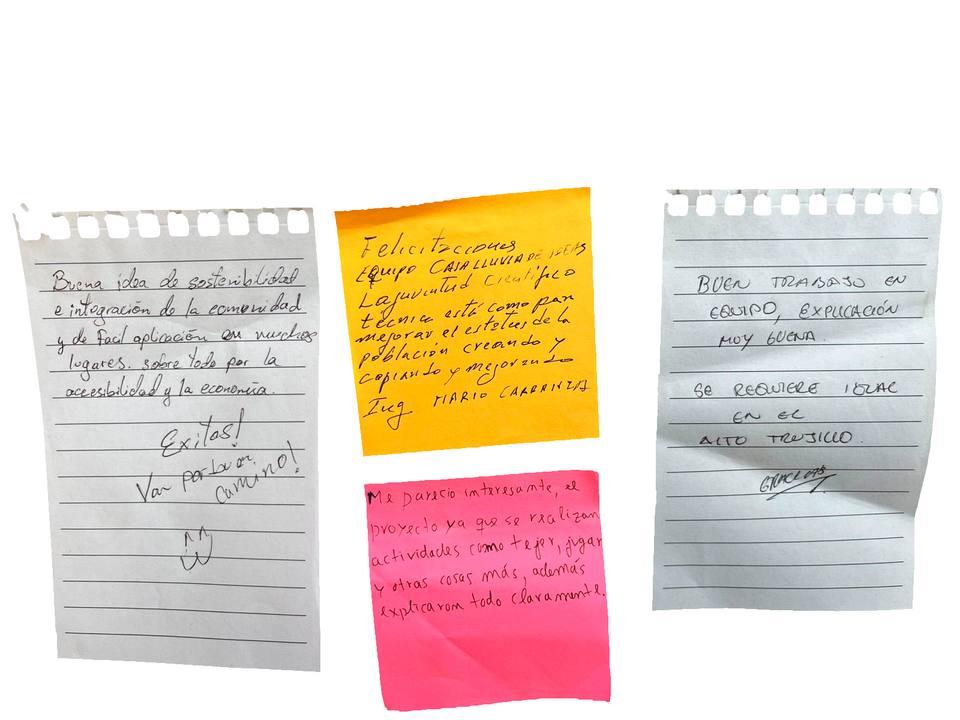 Buena idea de sostenibilidad
e integración de la comunidad
y de Facil aplicación en muchos
lugares. sobre todo por la
accesibilidad y la economía.
Exitos!
Van por buen
camino!
Felicitaciones
EQUIPO CASA LLUVIA DE IDEAS
La juventud científico
técnica está como para
mejorar el estatus de la
población creando y
copiando y mejorando
Ing MARIO CARRANZA
Me parecio interesante, el
proyecto ya que se realizan
actividades como tejer, jugar
y otras cosas más, además
explicaron todo claramente.
BUEN TRABAJO EN
EQUIPO, EXPLICACIÓN
MUY BUENA.
SE REQUIERE IGUAL
EN EL
ALTO TRUJILLO.
GRACIAS